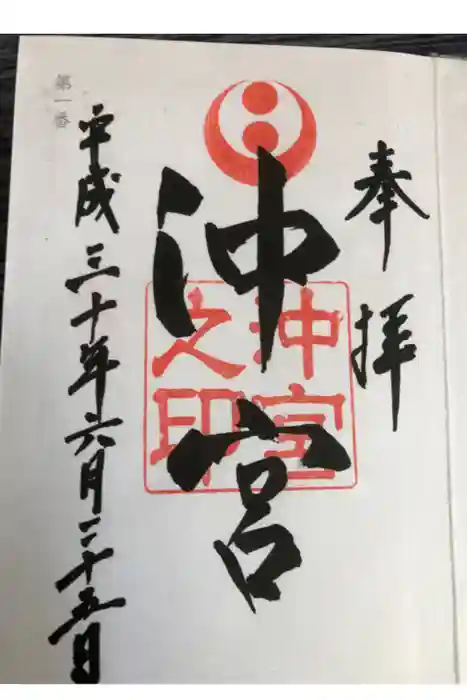 奉拝
沖宮
沖宮之印
平成三十年六月二十五日
第一番